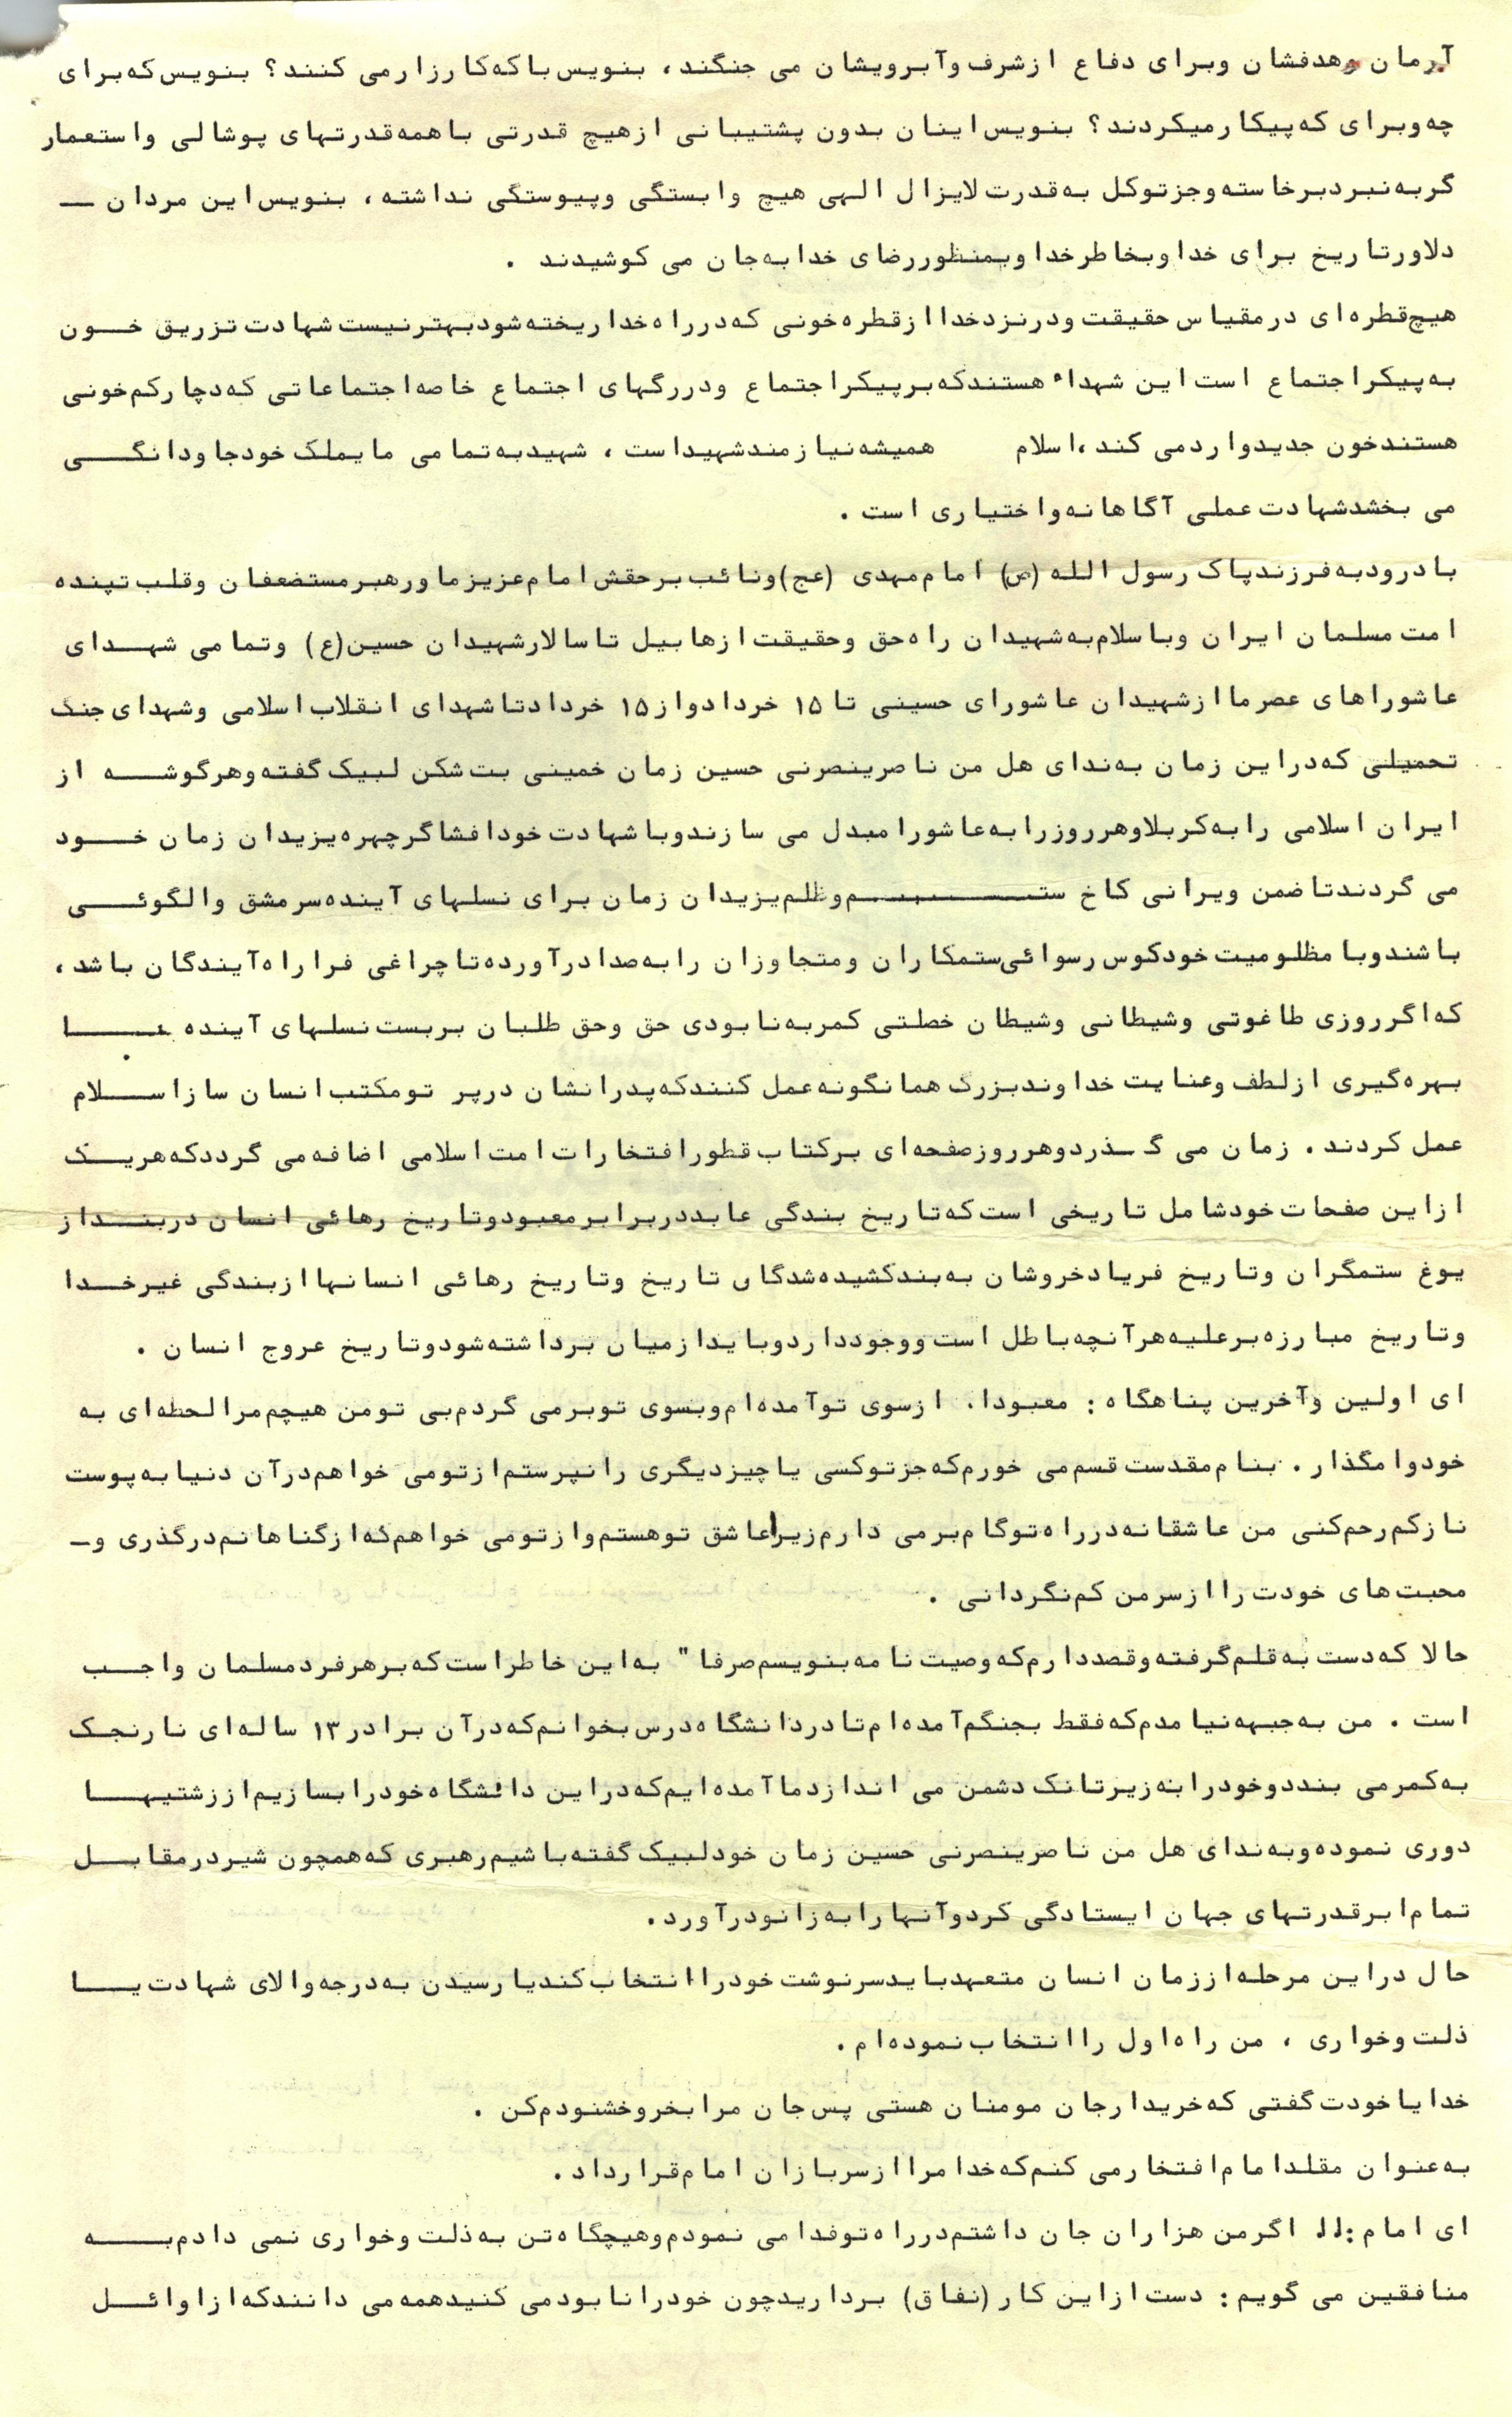 آرمان وهدفشان وبرای دفاع ازشرف وآبرویشان می جنگند، بنویس باکه کارزارمی کنند؟ بنویس که برای
چه وبرای که پیکارمیکردند؟ بنویس اینان بدون پشتیبانی ازهیچ قدرتی باهمه قدرتهای پوشالی واستعمار
گربه نبردبرخاسته وجزتوکل به قدرت لایزال الهی هیچ وابستگی وپیوستگی نداشته، بنویس این مردان —
دلاورتاریخ برای خداوبخاطرخداوبمنظوررضای خدابه جان می کوشیدند .
هیچ قطره ای درمقیاس حقیقت ودرنزدخداازقطره خونی که درراه خداریخته شودبهترنیست شهادت تزریق خون
به پیکراجتماع است این شهداء هستندکه برپیکراجتماع ودررگهای اجتماع خاصه اجتماعاتی که دچارکم خونی
هستندخون جدیدواردمی کند،اسلام همیشه نیازمندشهیداست ، شهیدبه تمامی مایملک خودجاودانگی
می بخشدشهادت عملی آگاهانه واختیاری است .
بادرودبه فرزندپاک رسول الله (ص) امام مهدی (عج)ونائب برحقش امام عزیزماورهبرمستضعفان وقلب تپنده
امت مسلمان ایران وباسلام به شهیدان راه حق وحقیقت ازهابیل تاسالارشهیدان حسین(ع) وتمامی شهدای
عاشوراهای عصرماازشهیدان عاشورای حسینی تا ۱۵ خردادواز۱۵ خردادتاشهدای انقلاب اسلامی وشهدای جنگ
تحمیلی که دراین زمان به ندای هل من ناصرینصرنی حسین زمان خمینی بت شکن لبیک گفته وهرگوشه از
ایران اسلامی رابه کربلاوهرروزرابه عاشورامبدل می سازندوباشهادت خودافشاگرچهره یزیدان زمان خود
می گردندتاضمن ویرانی کاخ ستم وظلم یزیدان زمان برای نسلهای آینده سرمشق والگوئی
باشندوبا مظلومیت خودکوس رسوائی ستمکاران ومتجاوزان رابه صدادرآورده تاچراغی فراراه آیندگان باشد،
که اگرروزی طاغوتی وشیطانی وشیطان خصلتی کمربه نابودی حق وحق طلبان بربست نسلهای آینده با
بهره گیری ازلطف وعنایت خداوندبزرگ همانگونه عمل کنندکه پدرانشان درپر تومکتب انسان سازاسلام
عمل کردند . زمان می گذردوهرروزصفحه ای برکتاب قطورافتخارات امت اسلامی اضافه می گرددکه هریک
ازاین صفحات خودشامل تاریخی است که تاریخ بندگی عابددربرابرمعبودوتاریخ رهائی انسان دربنداز
یوغ ستمگران وتاریخ فریادخروشان به بندکشیده شدگان تاریخ وتاریخ رهائی انسانهاازبندگی غیرخدا
وتاریخ مبارزه برعلیه هرآنچه باطل است ووجودداردوبایدازمیان برداشته شودوتاریخ عروج انسان .
ای اولین وآخرین پناهگاه : معبودا، ازسوی توآمده ام وبسوی توبرمی گردم بی تومن هیچم مرالحظه ای به
خودوامگذار . بنام مقدست قسم می خورم که جزتوکسی یاچیزدیگری رانپرستم ازتومی خواهم درآن دنیابه پوست
نازکم رحم کنی من عاشقانه درراه توگام برمی دارم زیراعاشق توهستم وازتومی خواهم که ازگناهانم درگذری و—
محبت های خودت راازسرمن کم نگردانی .
حالا که دست به قلم گرفته وقصددارم که وصیت نامه بنویسم صرفا" به این خاطراست که برهرفردمسلمان واجب
است . من به جبهه نیامدم که فقط بجنگم آمده ام تادردانشگاه درس بخوانم که درآن برادر۱۳ ساله ای نارنجک
به کمرمی بنددوخودرابه زیرتانک دشمن می اندازدماآمده ایم که دراین دانشگاه خودرابسازیم اززشتیها
دوری نموده وبه ندای هل من ناصرینصرنی حسین زمان خودلبیک گفته باشیم رهبری که همچون شیردرمقابل
تمام ابرقدرتهای جهان ایستادگی کردوآنهارابه زانودرآورد.
حال دراین مرحله اززمان انسان متعهدبایدسرنوشت خودراانتخاب کندیارسیدن به درجه والای شهادت یا
ذلت وخواری ، من راه اول راانتخاب نموده ام .
خدایاخودت گفتی که خریدارجان مومنان هستی پس جان مرابخروخشنودم کن .
به عنوان مقلدامام افتخارمی کنم که خدامراازسربازان امام قرارداد.
ای امام :!! اگرمن هزاران جان داشتم درراه توفدامی نمودم وهیچگاه تن به ذلت وخواری نمی دادم به
منافقین می گویم : دست ازاین کار (نفاق) برداریدچون خودرانابودمی کنیدهمه می دانندکه ازاوائل